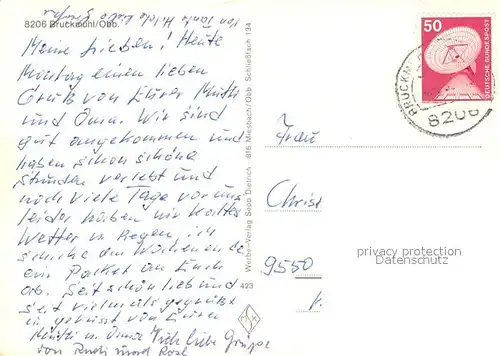 von Tante Hilde liebe Grüße
8206 Bruckmühl/Obb.
Meine Lieben! Heute
Montag einen lieben
Gruß von Eurer Mutti
und Oma. Wir sind
gut angekommen und
haben schon schöne
Stunden verlebt und
noch viele Tage vor uns
leider haben wir kaltes
Wetter u. Regen, ich
schicke am Wochenende
ein Paket an Euch
ab. Seit schön lieb und
seit vielmals gegrüßt
u. geküsst von Eurer
Mutti u. Oma Auch liebe Grüße
von Rudi und Rosl
Werbe-Verlag Sepp Dietrich 816 Miesbach/Obb. Schließfach 134
423
50
DEUTSCHE BUNDESPOST
BRUCKM
8206
Frau
Christ
9550
privacy protection
Datenschutz